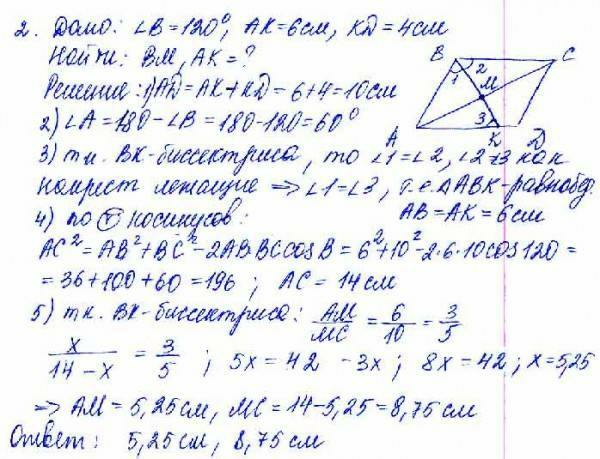 2. Дано: ∠B = 120°, AK = 6см, KD = 4см
Найти: BM, AK = ?
Решение: 1) AD = AK + KD = 6 + 4 = 10см
2) ∠A = 180 - ∠B = 180 - 120 = 60°
3) т.к. BK - биссектриса, то ∠1 = ∠2, ∠2 = ∠3 как
накрест лежащие => ∠1 = ∠3, т.е. ΔABK - равнобед.
AB = AK = 6см
4) по т косинусов:
AC² = AB² + BC² - 2AB·BC cos B = 6² + 10² - 2·6·10 cos 120 =
= 36 + 100 + 60 = 196 ; AC = 14 см
5) т.к. BK - биссектриса: AM/MC = 6/10 = 3/5
x/(14 - x) = 3/5 ; 5x = 42 - 3x ; 8x = 42 ; x = 5,25
=> AM = 5,25см, MC = 14 - 5,25 = 8,75 см
Ответ: 5,25 см, 8,75 см
B
C
1
2
M
3
A
K
D